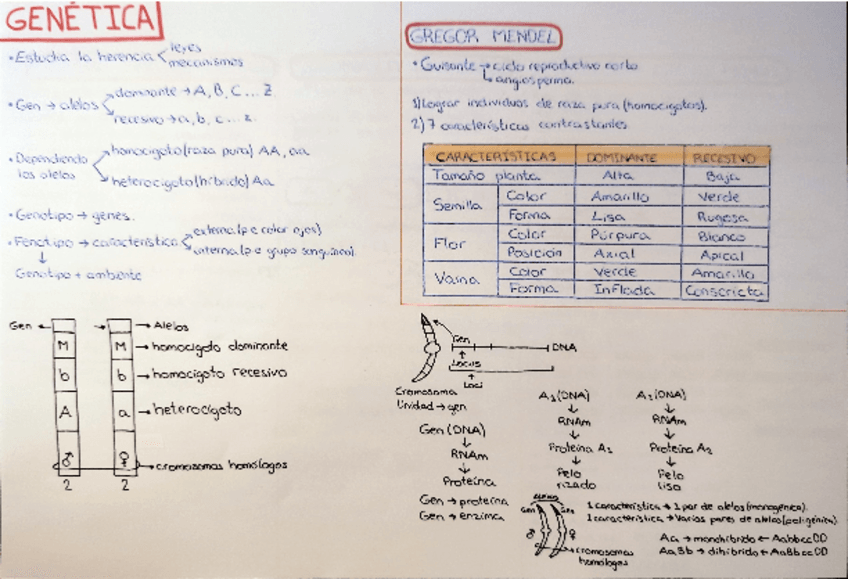 GENÉTICA
• Estudia la herencia leyes
mecanismos
• Gen → alelos dominante → A, B, C ... Z
recesivo → a, b, c ... z
• Dependiendo los alelos homocigoto (raza pura) AA, aa
heterocigoto (híbrido) Aa
• Genotipo → genes.
• Fenotipo → característica externa (p.e color ojos)
interna (p.e grupo sanguíneo)
Genotipo + ambiente
Gen ← → Alelos
M M → homocigoto dominante
b b → homocigoto recesivo
A a → heterocigoto
♂ ♀ → cromosomas homólogos
2 2
GREGOR MENDEL
• Guisante → ciclo reproductivo corto
↳ angiosperma.
1) Lograr individuos de raza pura (homocigotos).
2) 7 características contrastantes
CARACTERÍSTICAS DOMINANTE RECESIVO
Tamaño planta Alta Baja
Semilla Color Amarillo Verde
Forma Lisa Rugosa
Flor Color Púrpura Blanco
Posición Axial Apical
Vaina Color Verde Amarilla
Forma Inflada Constricta
Gen
DNA
Locus
Loci
Cromosoma
Unidad → gen
Gen (DNA)
↓
RNAm
↓
Proteína
A₁ (DNA)
↓
RNAm
↓
Proteína A₁
↓
Pelo
rizado
A₂ (DNA)
↓
RNAm
↓
Proteína A₂
↓
Pelo
liso
Gen → proteína
Gen → enzima
Gen Gen
♂ ♀
→ cromosomas
homólogos
1 característica → 1 par de alelos (monogénica).
1 característica → Varios pares de alelos (poligénica)
Aa → monohíbrido ← AabbccDD
AaBb → dihíbrido ← AaBbccDD